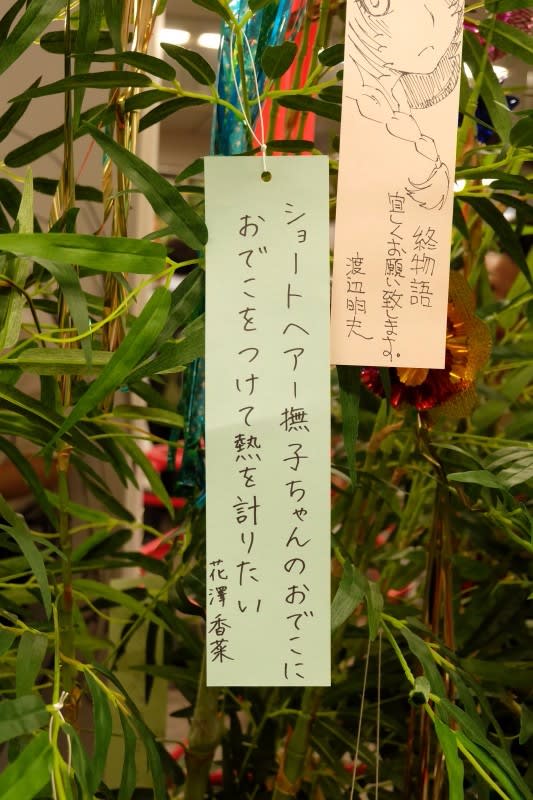 ショートヘアー撫子ちゃんのおでこに
おでこをつけて熱を計りたい
花澤香菜
終物語
宜しくお願い致します。
渡辺明夫